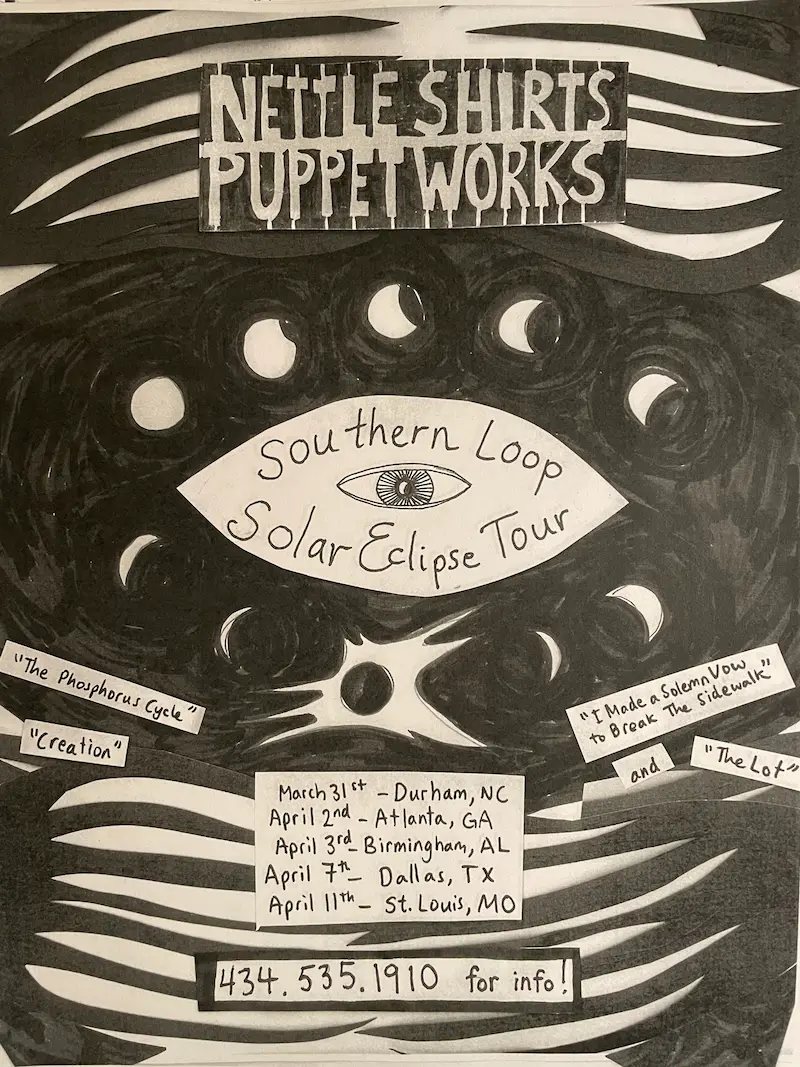 NETTLE SHIRTS
PUPPETWORKS
Southern Loop
Solar Eclipse Tour
"The Phosphorus Cycle"
"Creation"
"I Made a Solemn Vow
to Break The Sidewalk"
and
"The Lot"
March 31st - Durham, NC
April 2nd - Atlanta, GA
April 3rd - Birmingham, AL
April 7th - Dallas, TX
April 11th - St. Louis, MO
434.535.1910 for info!